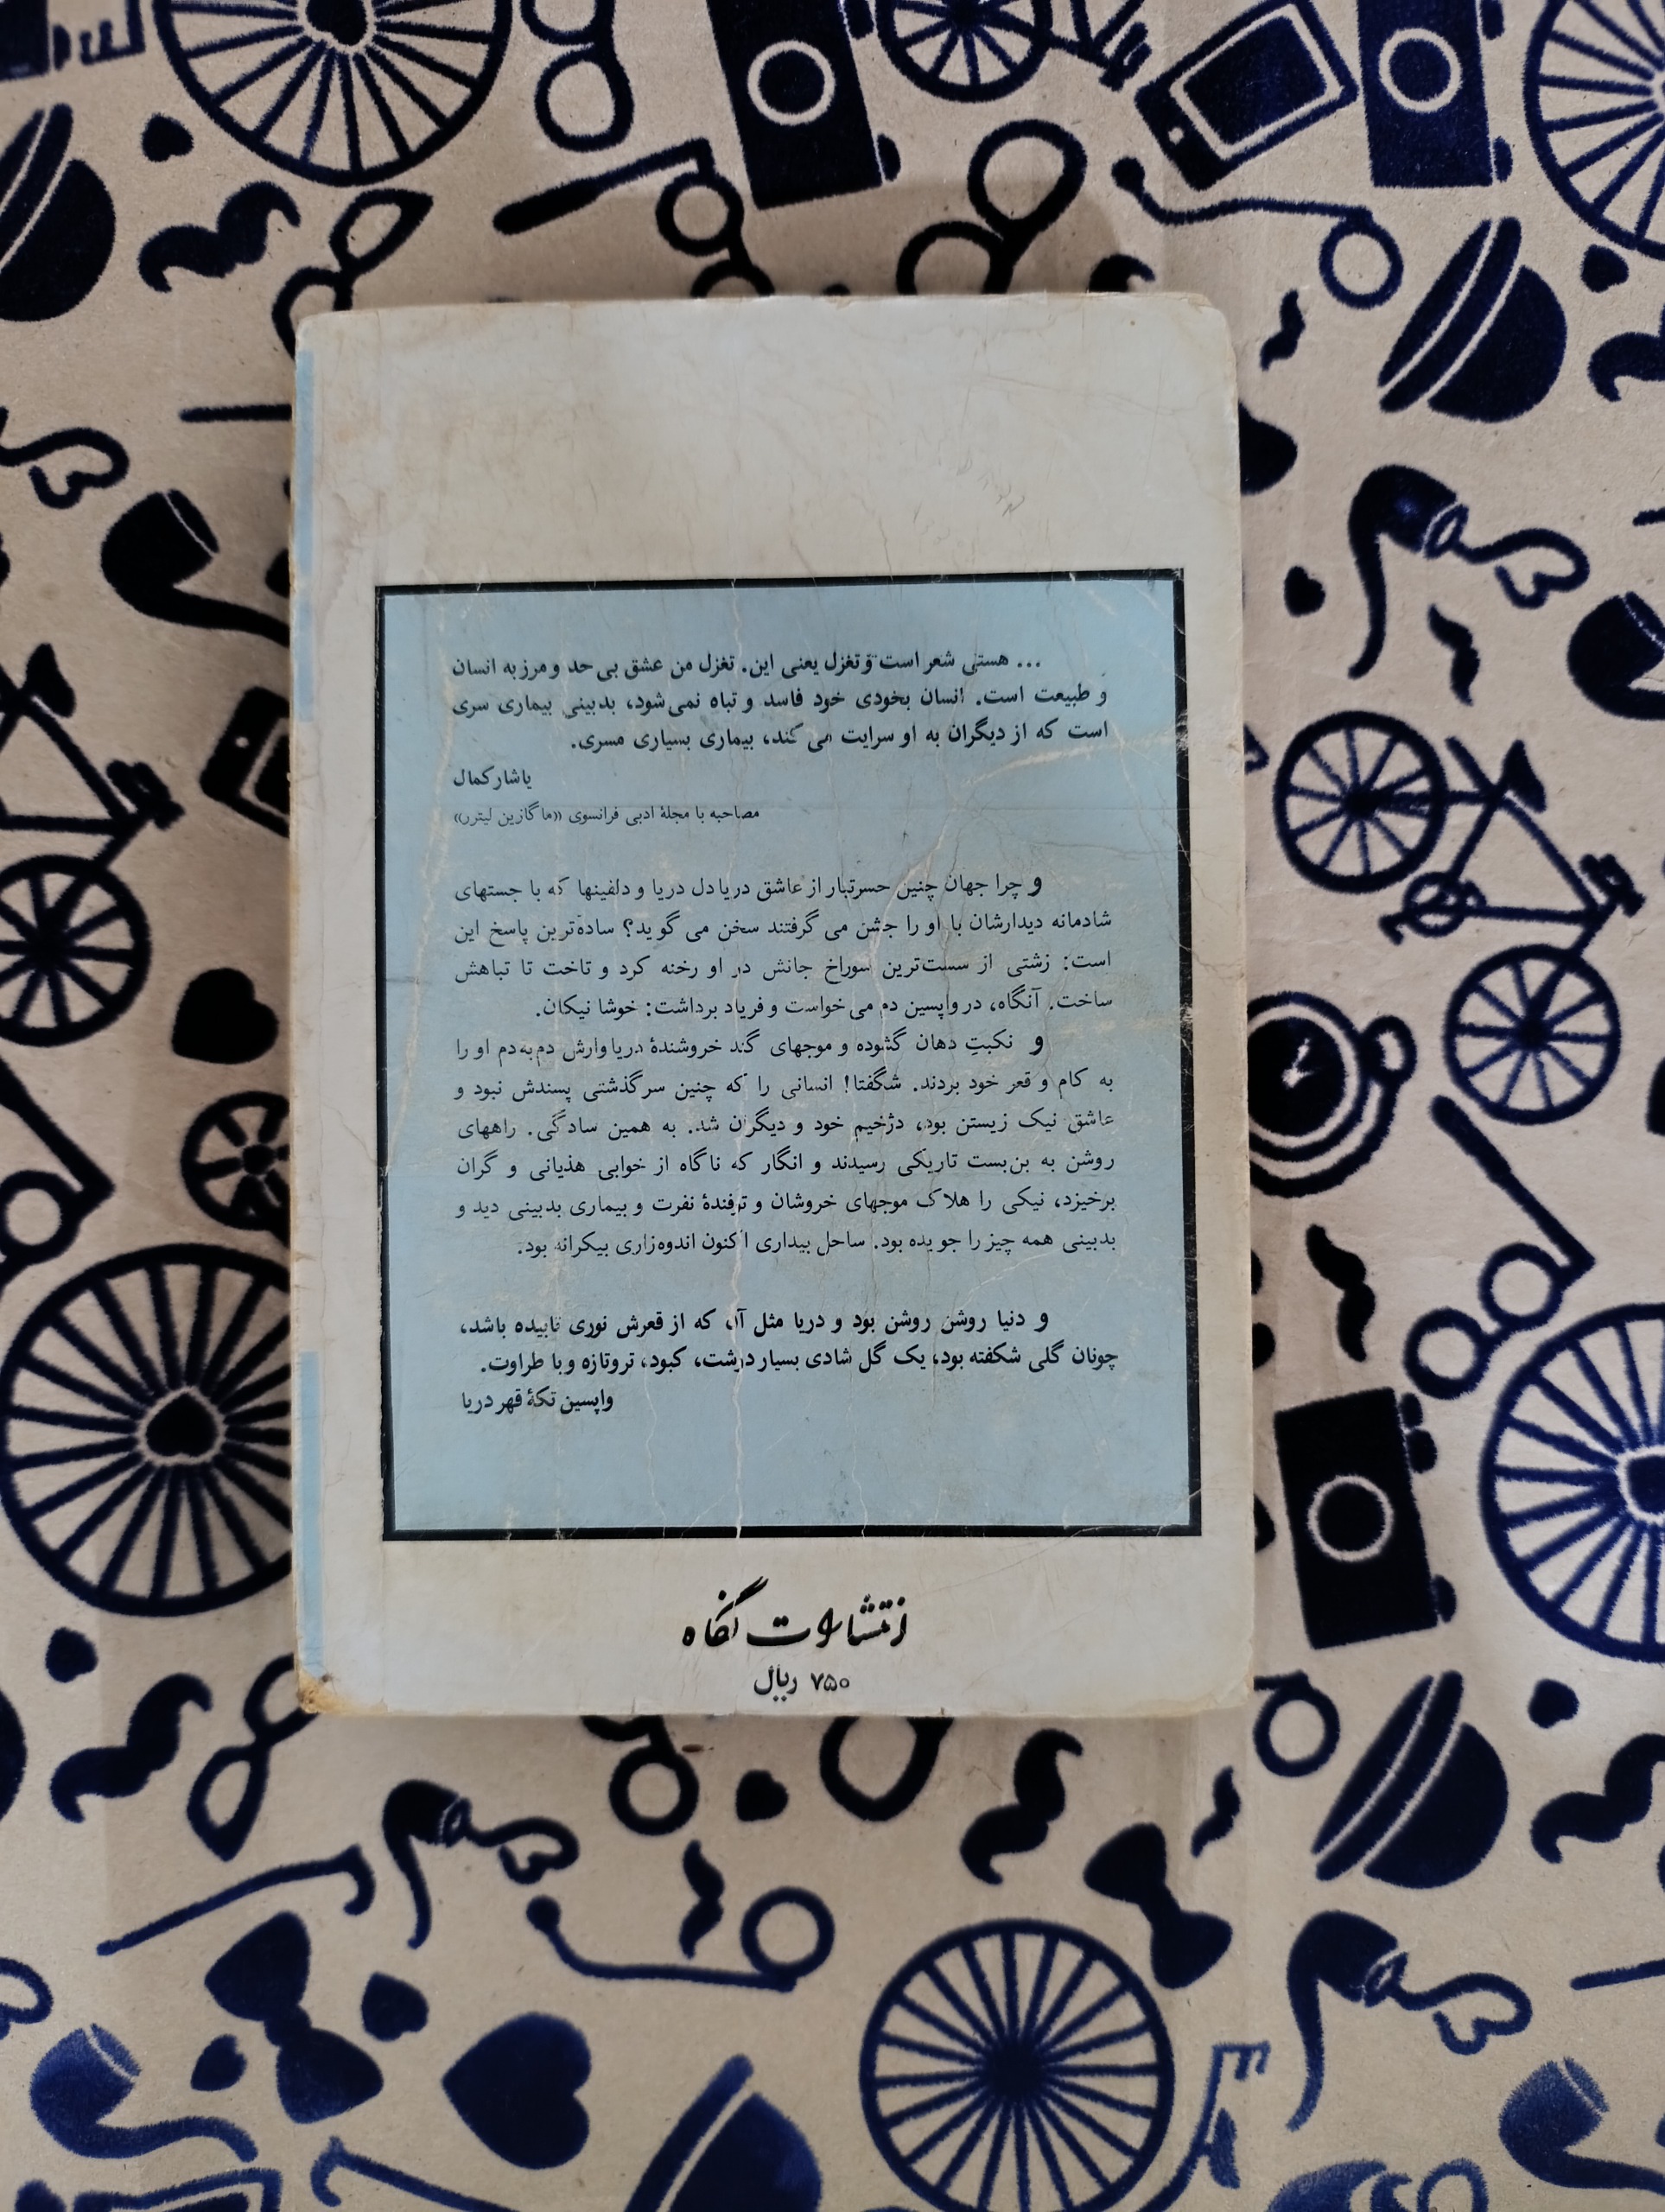 ... هستی شعر است و تغزل یعنی این. تغزل من عشق بی حد و مرز به انسان
و طبیعت است. انسان بخودی خود فاسد و تباه نمی‌شود، بدبینی بیماری سری
است که از دیگران به او سرایت می کند، بیماری بسیاری مسری.
یاشارکمال
مصاحبه با مجلهٔ ادبی فرانسوی «ماگازین لیترر»
و چرا جهان چنین حسرتبار از عاشق دریادل دریا و دلفینها که با جستهای
شادمانه دیدارشان با او را جشن می گرفتند سخن می گوید؟ ساده‌ترین پاسخ این
است: زشتی از سست‌ترین سوراخ جانش در او رخنه کرد و تاخت تا تباهش
ساخت. آنگاه، در واپسین دم می‌خواست و فریاد برداشت: خوشا نیکان.
و نکبتِ دهان گشوده و موجهای گند خروشندهٔ دریاوارش دم‌به‌دم او را
به کام و قعر خود بردند. شگفتا! انسانی را که چنین سرگذشتی پسندش نبود و
عاشق نیک زیستن بود، دژخیم خود و دیگران شد. به همین سادگی. راههای
روشن به بن‌بست تاریکی رسیدند و انگار که ناگاه از خوابی هذیانی و گران
برخیزد، نیکی را هلاک موجهای خروشان و ترفندهٔ نفرت و بیماری بدبینی دید و
بدبینی همه چیز را جویده بود. ساحل بیداری اکنون اندوه‌زاری بیکرانه بود.
و دنیا روشن روشن بود و دریا مثل آن که از قعرش نوری تابیده باشد،
چونان گلی شکفته بود، یک گل شادی بسیار درشت، کبود، تروتازه و با طراوت.
واپسین تکهٔ قهر دریا
انتشارات نگاه
۷۵۰ ریال